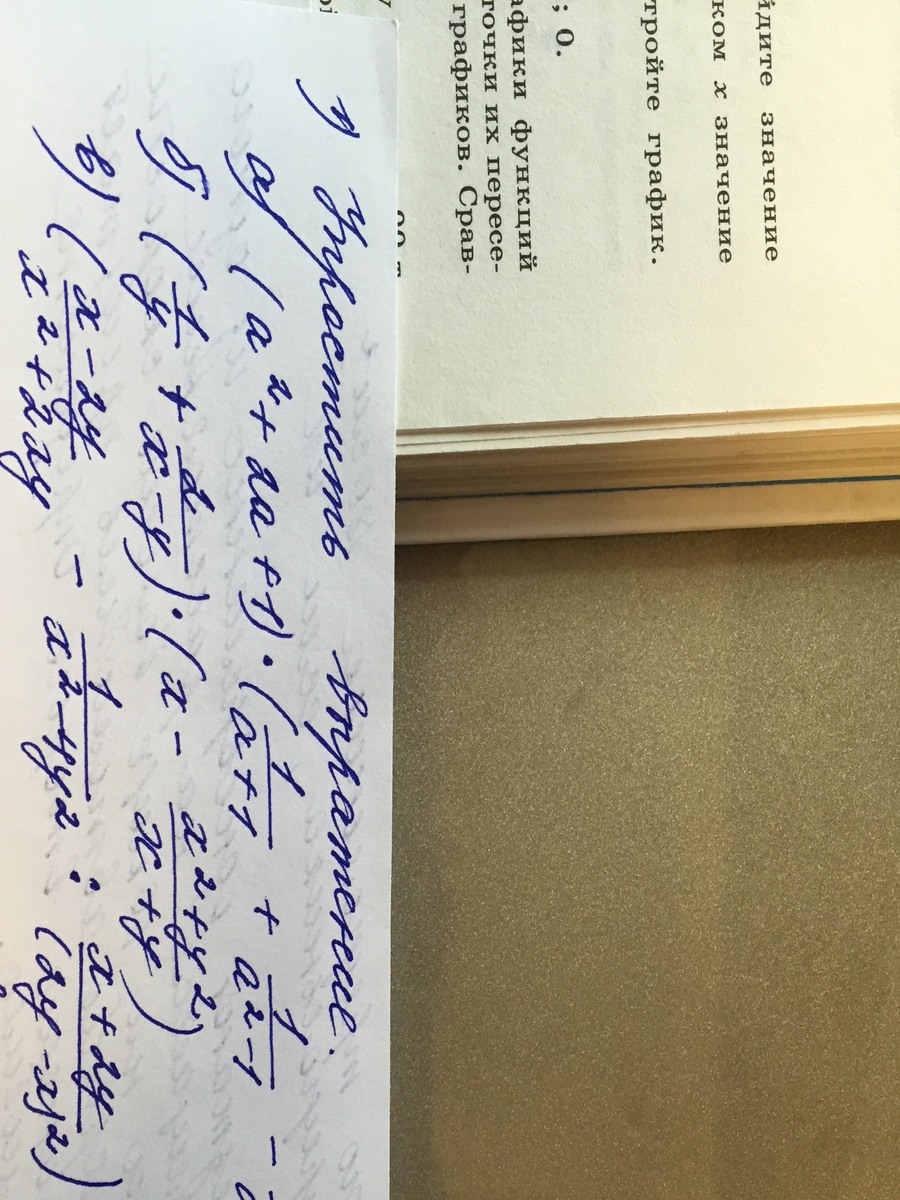 йдите значение
ком x значение
тройте график.
; 0.
афики функций
точки их пересе-
графиков. Срав-
1) Упростить выражение.
а) (a² + 2a + 1) · (1/(a+1) + 1/(a²-1) -
б) (1/y + 2/(x-y)) · (x - (x²+y²)/(x+y))
в) ((x-2y)/(x²+2xy) - 1/(x²-4y²) : (x+2y)/(2y-x)²)